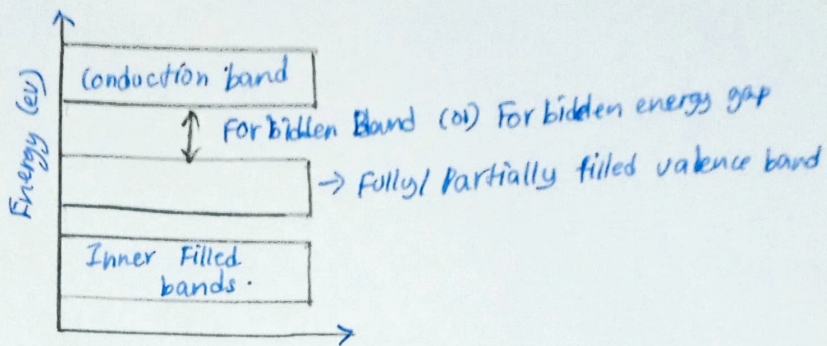 Energy (ev)
Conduction band
Forbidden Band (or) Forbidden energy gap
→ Fully/ Partially filled valence band
Inner Filled
bands.